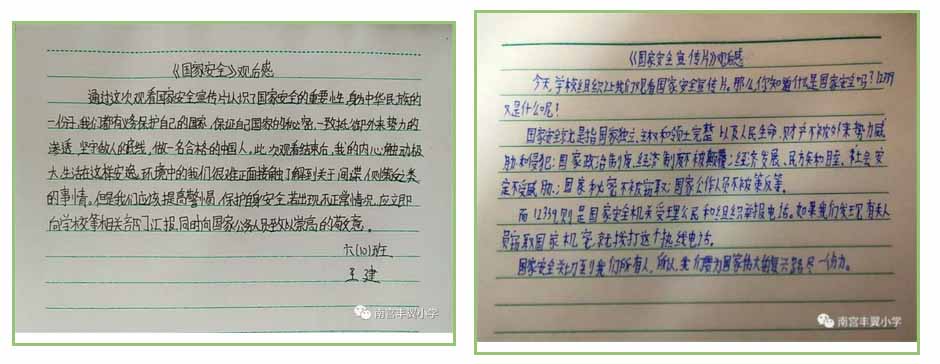 《国家安全》观后感
通过这次观看国家安全宣传片认识了国家安全的重要性,身为中华民族的
一份子,我们都有义务保护自己的国家,保证自己国家的秘密,一致抵御外来势力的
渗透,坚守做人的底线,做一名合格的中国人,此次观看结束后,我的内心触动极
大生活在这样安逸环境中的我们很难正面接触了解到关于间谍,侧之类
的事情。但是我们应该提高警惕,保护自身安全,若出现不正常情况,应立即
向学校等相关部门汇报,同时向国家公务人员致以崇高的敬意。
六(10)班
王建
南宫丰翼小学
《国家安全宣传片》观后感
今天,学校组织让我们观看国家安全宣传片。那么,你知道什么是国家安全吗?12339
又是什么呢!
国家安全就是指国家独立、主权和领土完整以及人民生命,财产不被外来势力威
胁和侵犯;国家政治制度,经济制度不被颠覆;经济发展、民族和睦、社会安
定不受威胁;国家秘密不被窃取;国家工作人员不被策反等。
而12339则是国家安全机关受理公民和组织举报电话。如果我们发现有关人
员窃取国家机密,就拨打这个热线电话。
国家安全关切至我们所有人,所以,我们要为国家伟大的复兴路尽一份力。
南宫丰翼小学